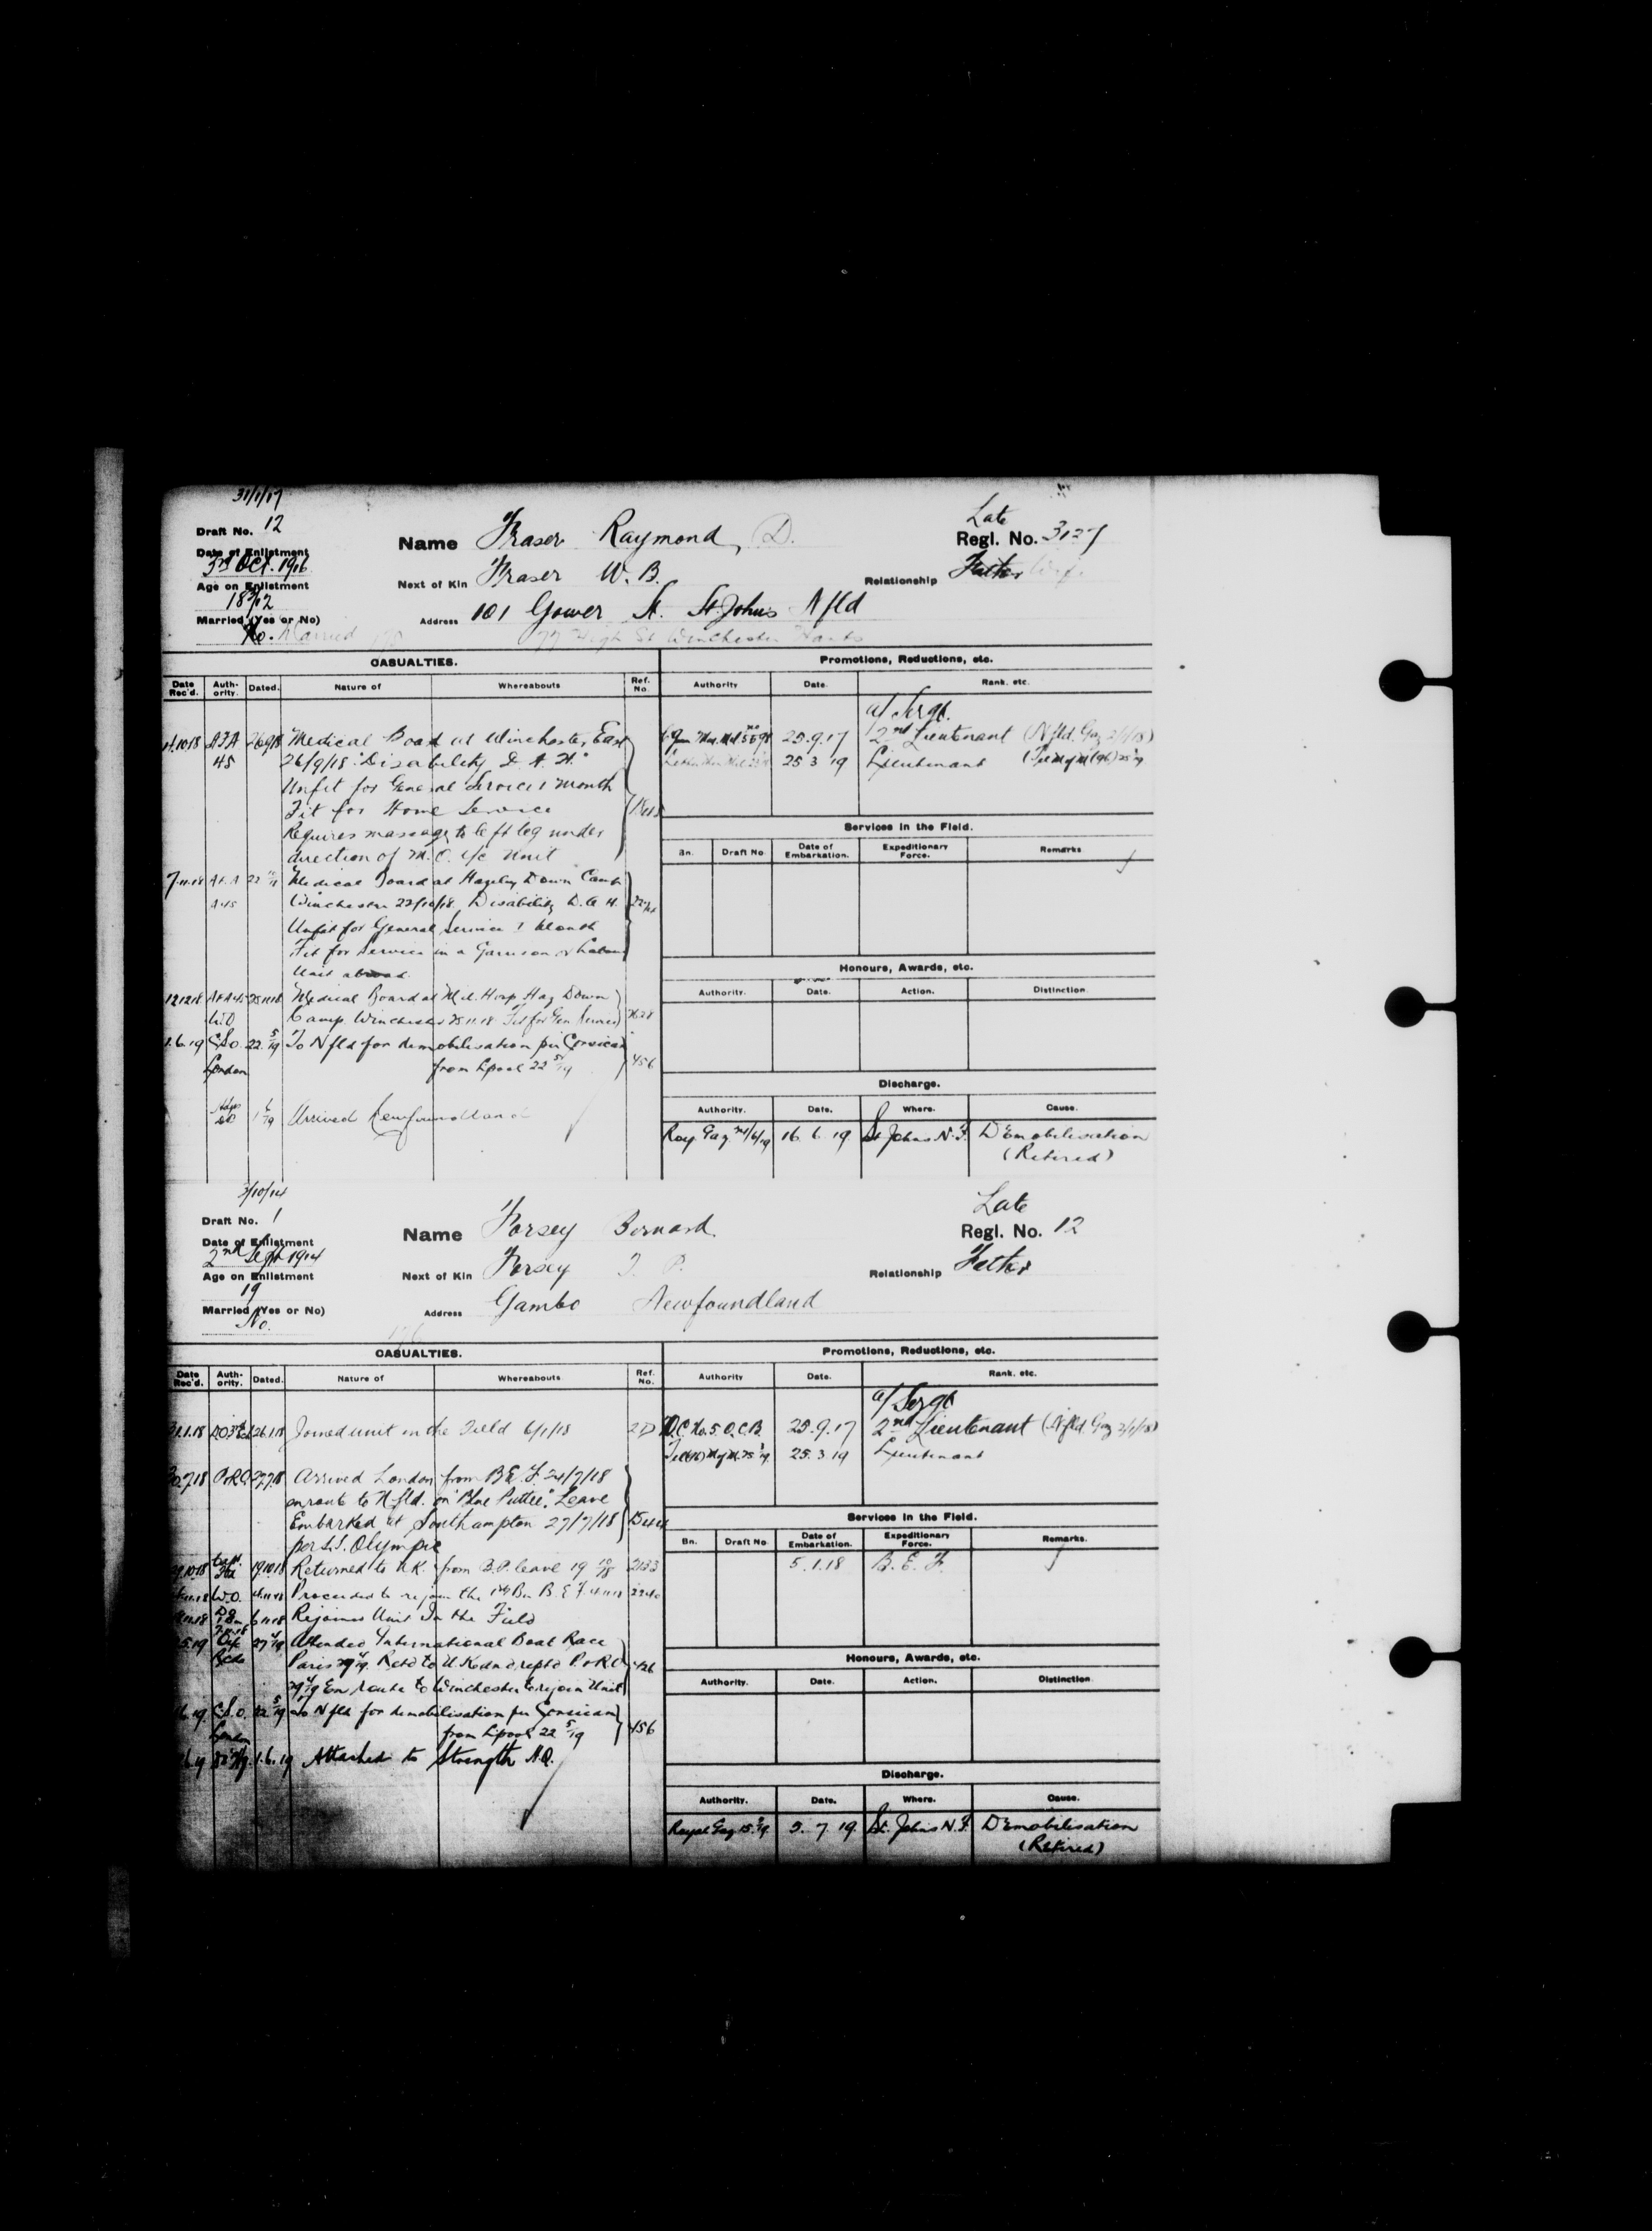 31/1/17
Draft No. 12
Date of Enlistment
3rd Oct. 1916
Age on Enlistment
18
Married (Yes or No)
No. Married
Name Fraser Raymond, D.
Next of Kin Fraser W. B.
Address 101 Gower St. St. Johns Nfld
77 High St Winchester Hants
Late
Regl. No. 3127
Relationship Father Wife
CASUALTIES.
Date Rec'd. Auth-ority. Dated. Nature of Whereabouts Ref. No.
26918 Medical Board at Winchester, East
45 26/9/18 Disability D. A. H.
Unfit for General Service 1 month
Fit for Home Service
Requires massage to left leg under
direction of M. O. i/c Unit
7.11.18 Medical Board at Hazeley Down Camp
Winchester 22/10/18. Disability D. A. H.
Unfit for General Service 1 Month
Fit for Service in a Garrison or Labour
Unit abroad.
12.12.18 25.11.18 Medical Board at Mil. Hosp Haz Down
W.O Camp. Winchester 25.11.18 Fit for Gen Service
1.6.19 C.S.O. 22 5/19 To Nfld for demobilisation per Corsican
London from Lpool 22 5/19 456
1 6/19 Arrived Newfoundland
Promotions, Reductions, etc.
Authority Date. Rank. etc.
a/ Sergt.
25.9.17 2nd Lieutenant (Nfld. Gaz 2/1/18)
25 3 19 Lieutenant
Services in the Field.
Bn. Draft No. Date of Embarkation. Expeditionary Force. Remarks
Honours, Awards, etc.
Authority. Date. Action. Distinction.
Discharge.
Authority. Date. Where. Cause.
Roy. Gaz 16. 6. 19 St Johns N. F. Demobilisation
(Retired)
3/10/14
Draft No. 1
Date of Enlistment
2nd Sept 1914
Age on Enlistment
19
Married (Yes or No)
No.
Name Forsey Bernard.
Next of Kin Forsey
Address Gambo Newfoundland
Late
Regl. No. 12
Relationship Father
CASUALTIES.
Date Rec'd. Auth-ority. Dated. Nature of Whereabouts Ref. No.
26.1.18 Joined unit in the Field 6/1/18
Arrived London from B.E.F. 24/7/18
en route to Nfld. on "Blue Puttee" Leave
Embarked at Southampton 27/7/18
per S.S. Olympic
19.10.18 Returned to U.K. from B.P. leave 19 10/18 2133
W.O. Proceeded to rejoin the 1st Bn B.E.F. 4.11.18
6.11.18 Rejoined Unit In the Field
27 4/19 Attended International Boat Race
Paris Retd to U.K. and reptd P. & R.O.
En route to Winchester to rejoin Unit
C.S.O. 22 5/19 To Nfld for demobilisation per Corsican
London from Lpool 22 5/19 456
1.6.19 Attached to Strength H.Q.
Promotions, Reductions, etc.
Authority Date. Rank. etc.
a/ Sergt
O.C. No. 5. O.C.B. 25.9.17 2nd Lieutenant (Nfld. Gaz 2/1/18)
25.3.19 Lieutenant
Services in the Field.
Bn. Draft No. Date of Embarkation. Expeditionary Force. Remarks.
5.1.18 B. E. F.
Honours, Awards, etc.
Authority. Date. Action. Distinction.
Discharge.
Authority. Date. Where. Cause.
Royal Gaz 5. 7. 19. St. Johns N. F. Demobilisation
(Retired)